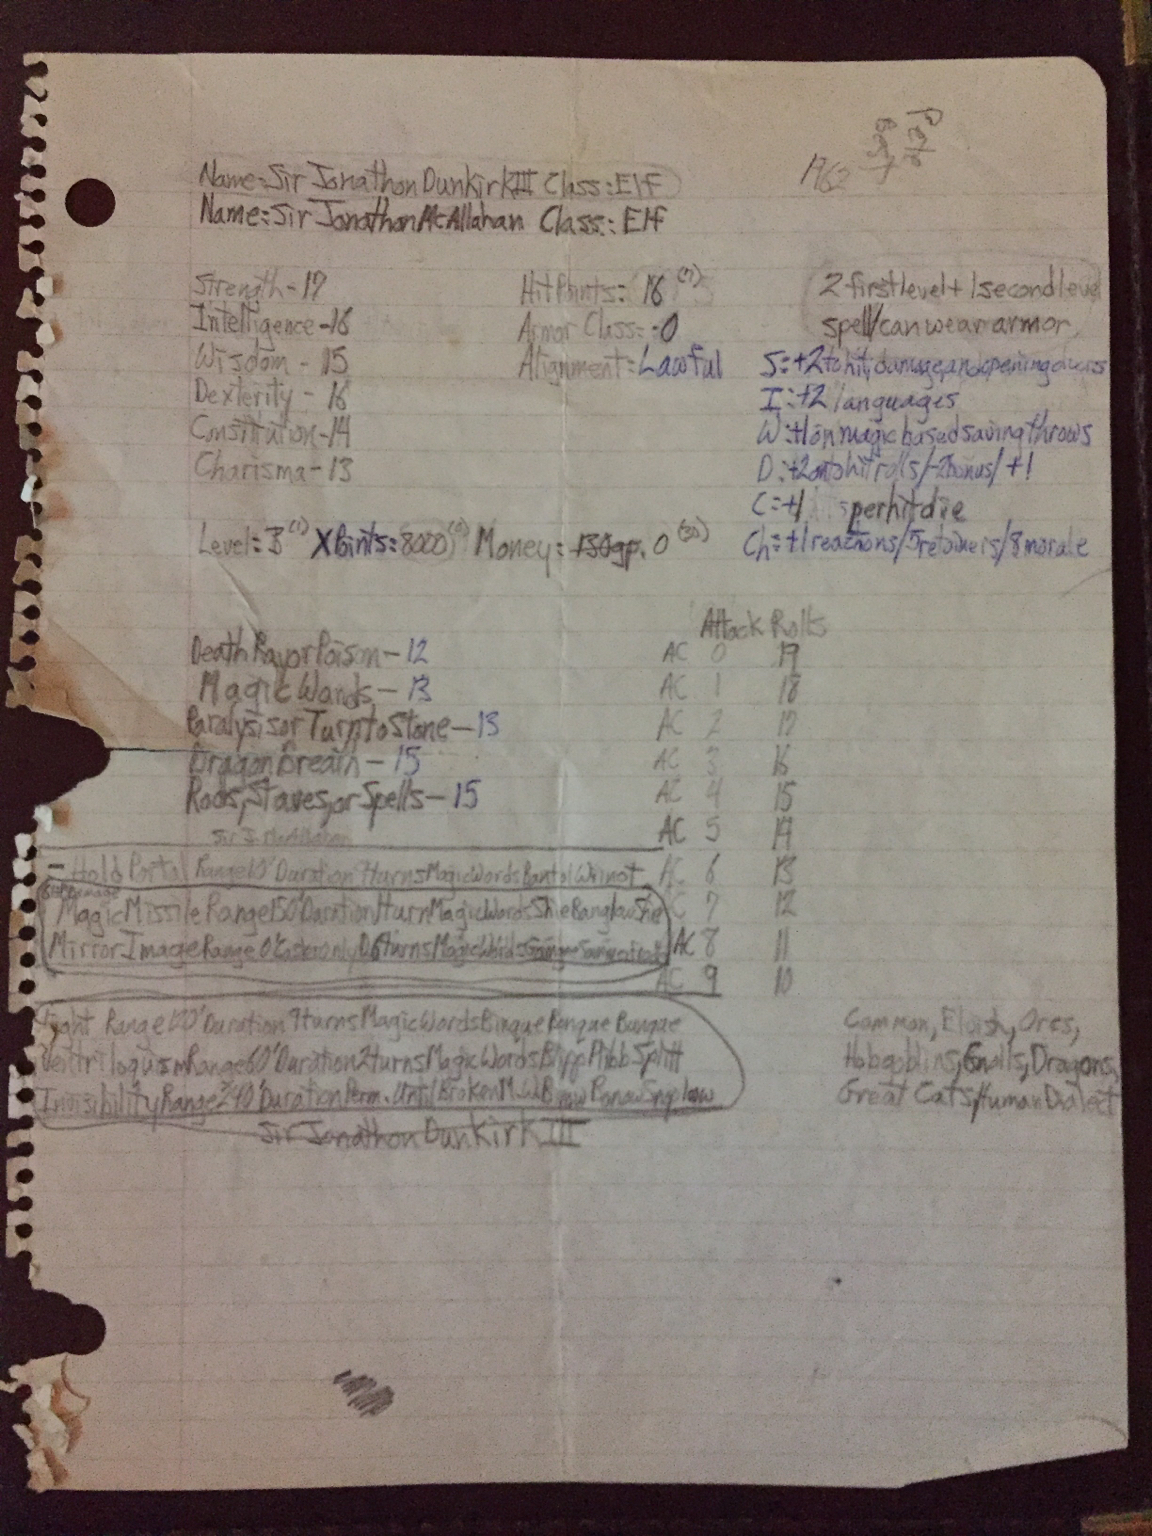 1962
Name:Sir Jonathon Dunkirk III Class:Elf
Name:Sir Jonathon McAllahan Class:Elf
Strength-17 Hit Points: 16 (7) 2 first level + 1 second level
Intelligence-16 Armor Class:-0 spell/can wear armor
Wisdom - 15 Alignment:Lawful S:+2 to hit, damage, and opening doors
Dexterity - 16 I:+2 languages
Constitution-14 W:+1 on magic based saving throws
Charisma-13 D:+2 onto hit rolls/-2 bonus/+1
C:+1 per hit die
Level:3 (1) X Points:8000 Money: 130gp. 0 (30) Ch:+1 reactions/5 retainers/8 morale
Attack Rolls
Death Ray or Poison-12 AC 0 19
Magic Wands-13 AC 1 18
Paralysis or Turn to Stone-13 AC 2 17
Dragon Breath-15 AC 3 16
Rods, Staves, or Spells-15 AC 4 15
Sir J. McAllahan AC 5 14
- Hold Portal Range 10' Duration turns Magic Words AC 6 13
Magic Missile Range 150' Duration 1 turn Magic Words C 7 12
Mirror Image Range 0' caster only D 6 turns Magic Words AC 8 11
AC 9 10
Light Range 120' Duration turns Magic Words Binque Bonque Bunque Common, Elvish, Orcs,
Ventriloquism Range 60' Duration 2 turns Magic Words Blipp Plibb Splitt Hobgoblins, Gnolls, Dragons,
Invisibility Range 240' Duration Perm. Until Broken M.W. Great Cats, Human Dialect
Sir Jonathon Dunkirk III